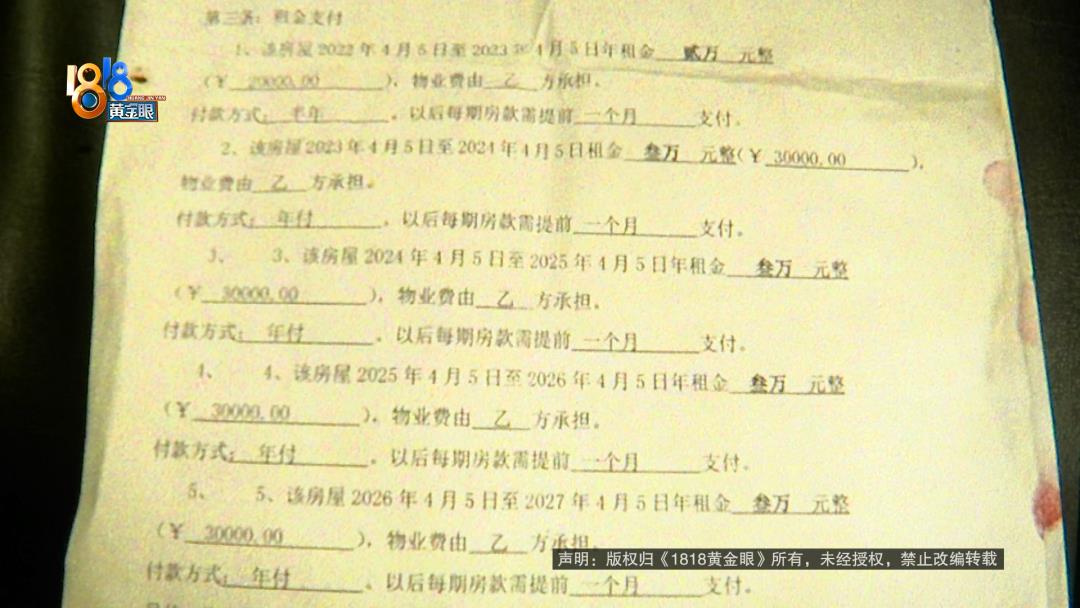 第三条：租金支付
1、该房屋2022年4月5日至2023年4月5日年租金 贰万 元整
（￥ 20000.00 ），物业费由 乙 方承担。
付款方式：半年 。以后每期房款需提前 一个月 支付。
2、该房屋2023年4月5日至2024年4月5日租金 叁万 元整（￥ 30000.00 ），
物业费由 乙 方承担。
付款方式：年付 。以后每期房款需提前 一个月 支付。
3、 3、该房屋2024年4月5日至2025年4月5日年租金 叁万 元整
（￥ 30000.00 ），物业费由 乙 方承担。
付款方式：年付 。以后每期房款需提前 一个月 支付。
4、 4、该房屋2025年4月5日至2026年4月5日年租金 叁万 元整
（￥ 30000.00 ），物业费由 乙 方承担。
付款方式：年付 。以后每期房款需提前 一个月 支付。
5、 5、该房屋2026年4月5日至2027年4月5日年租金 叁万 元整
（￥ 30000.00 ），物业费由 乙 方承担。
付款方式：年付 。以后每期房款需提前 一个月 支付。
1818
HUANG JIN YAN
黄金眼
声明：版权归《1818黄金眼》所有，未经授权，禁止改编转载